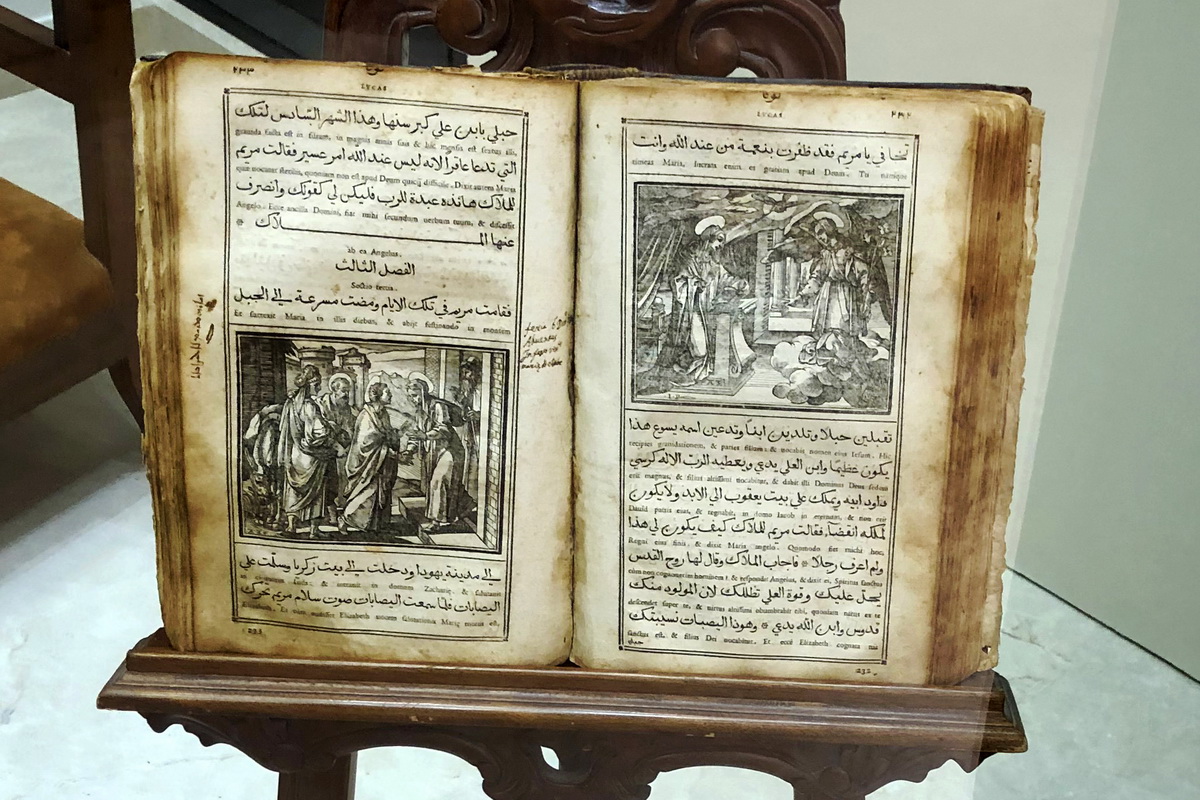 ٢٣٢
LVCAS
تخافي يا مريم فقد ظفرت بنعمة من عند الله وانت
timeas Maria, enim es gratiam apud Deum. Tu
تقبلين حبلا وتلدين ابنا وتدعين اسمه يسوع هذا
& paries filium: & vocabit nomen eius Iesum. Hic
يكون عظيما وابن العلي يدعي ويعطيه الرب الاله كرسي
erit magnus, & filius altissimi vocabitur, & dabit illi Dominus Deus sedem
داود ابيه ويملك علي بيت يعقوب الي الابد ولا يكون
Dauid patris eius, & regnabit in domo Iacob in & non erit
لملكه انقضا فقالت مريم للملاك كيف يكون لي هذا
Regni eius finis. & dixit Maria angelo. Quomodo fiet mihi hoc,
ولم اعرف رجلا * فاجاب الملاك وقال لها روح القدس
& respondit Angelus, & dixit ei, Spiritus sanctus
يحل عليك وقوة العلي تظللك لان المولود منك
descendet super te, & virtus altissimi obumbrabit tibi, quoniam natus ex te
قدوس وابن الله يدعي * وهوذا اليصبات نسيبتك
sanctus est, & filius Dei vocabitur. Et ecce Elizabeth cognata tua
حبلي
232
٢٣٣
LVCAS
حبلي بابن علي كبر سنها وهذا الشهر السادس لتلك
grauida facta est in filium, in magnis annis suis & hic mensis est sextus illi,
التي تدعا عاقرا لانه ليس عند الله امر عسير فقالت مريم
quae vocatur sterilis, quoniam non est apud Deum difficile. Dixit autem Maria
للملاك هانذه عبدة للرب فليكن لي كقولك وانصرف
Angelo. Ecce ancilla Domini, fiat mihi secundum verbum tuum, & discessit
عنها الملاك *
ab ea Angelus.
الفصل الثالث
Sectio tertia.
فقامت مريم في تلك الايام ومضت مسرعة الي الجبل
Et surrexit Maria in illis diebus, & abijt festinando in montem
الي مدينة يهودا ودخلت الي بيت زكريا وسلمت علي
& in domum Zachariae, & salutauit
اليصابات فلما سمعت اليصابات صوت سلام مريم تحرك
Elizabeth. Et cum audisset Elizabeth vocem salutationis Mariae motus est,
233